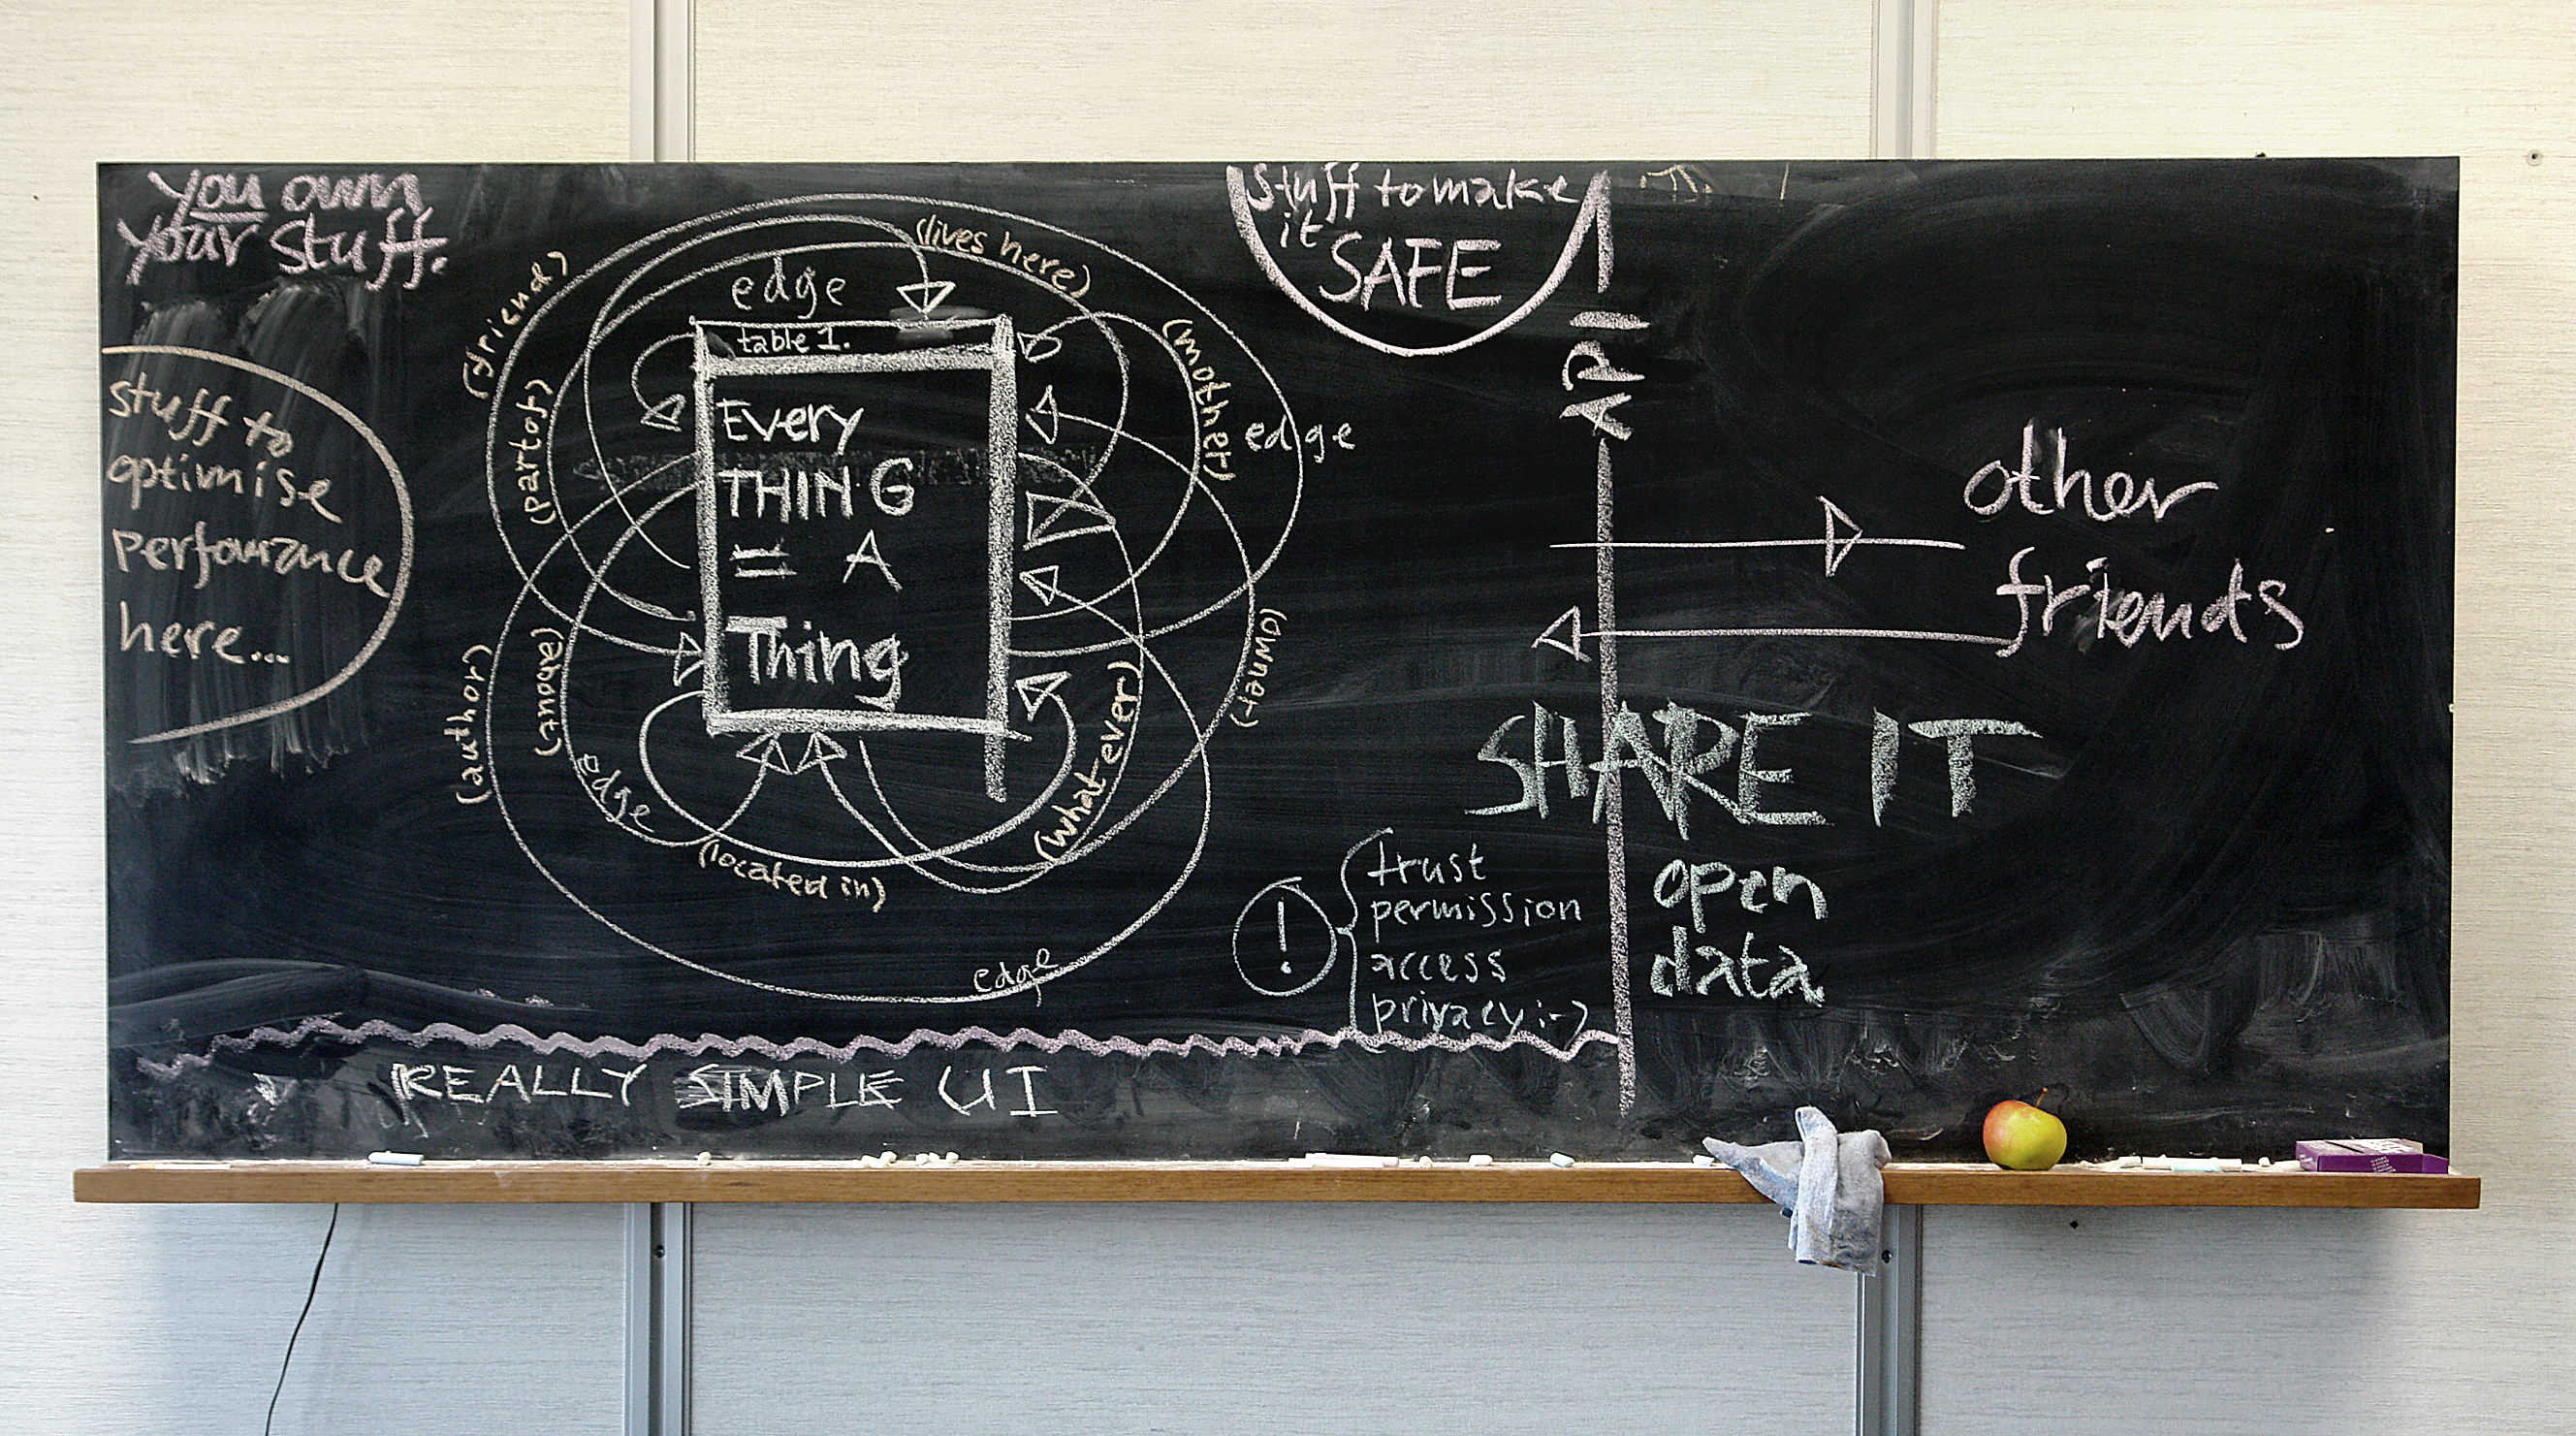 you own
your stuff.
stuff to
optimise
perfomance
here...
(friend)
(part of)
(lives here)
edge
table 1.
Every
THING
= A
Thing
(mother)
edge
(owner)
(what ever)
(author)
(about)
edge
(located in)
edge
stuff to make
it
SAFE
API
other
friends
SHARE IT
open
data
!
trust
permission
access
privacy :-)
REALLY SIMPLE UI